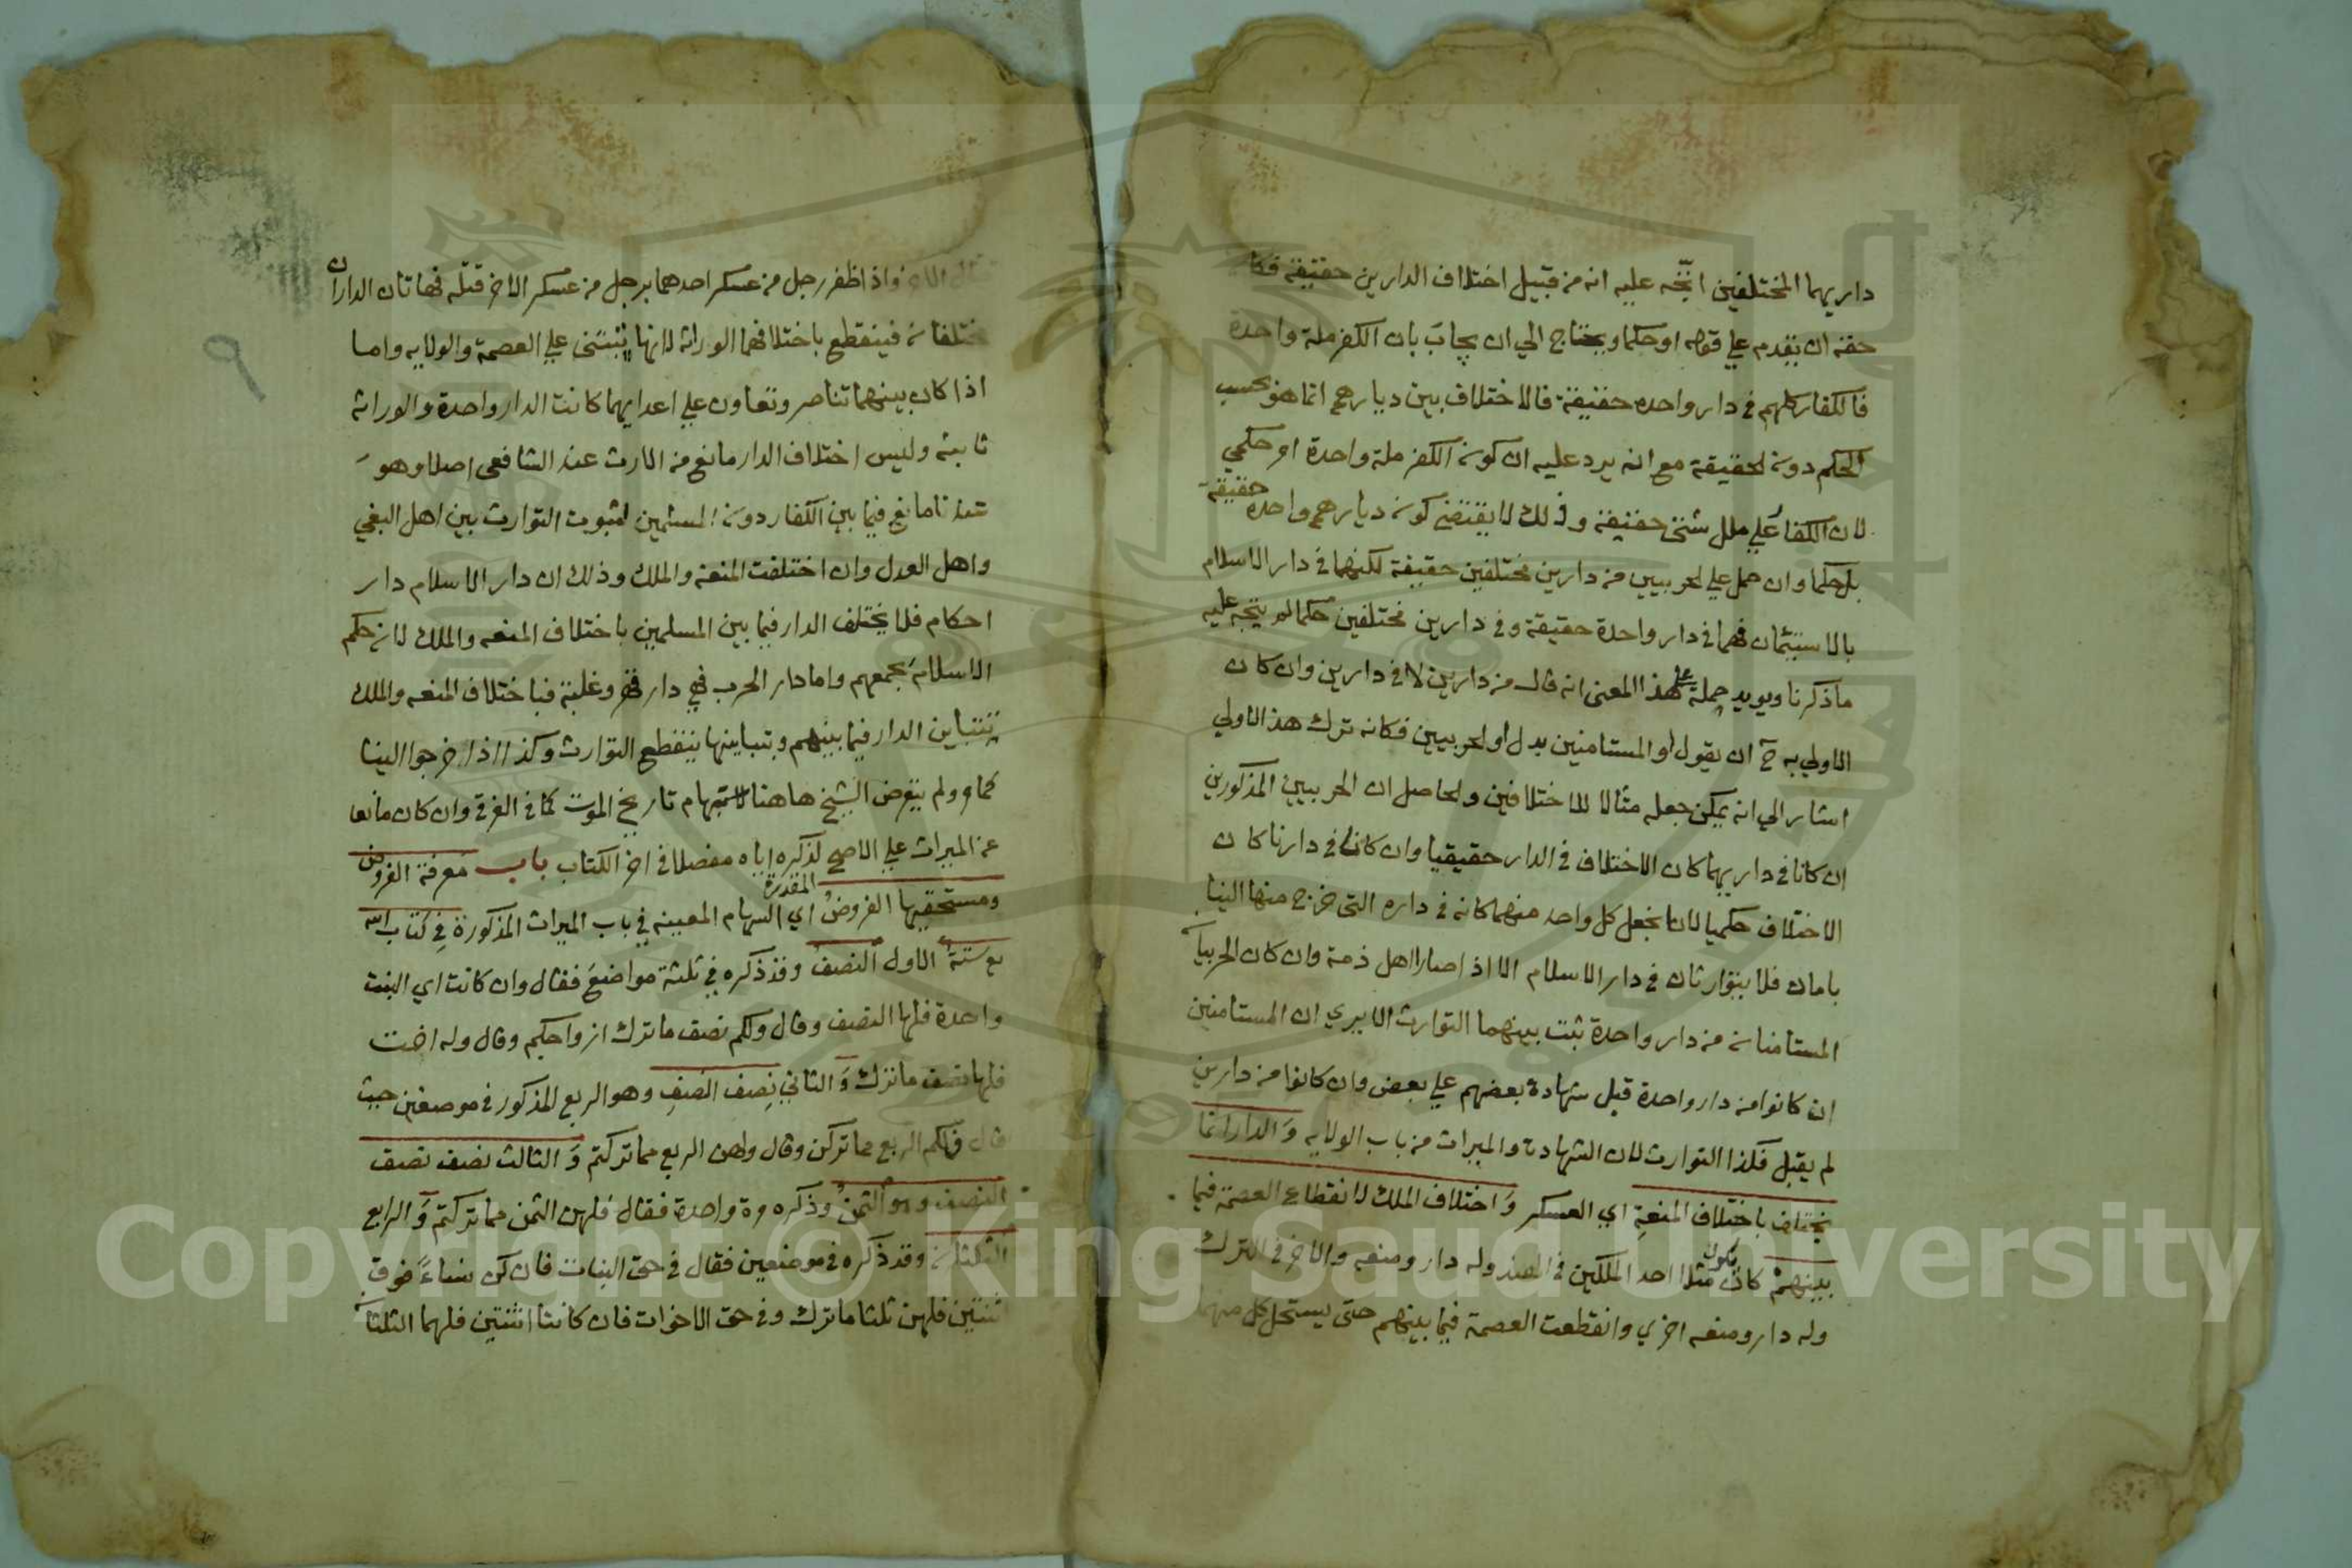 داريهما المختلفين اتجه عليه انه من قبيل اختلاف الدارين حقيقة فكان
حقه ان يقدم علي قوله او حكما ويحتاج الي ان يجاب بان الكفر ملة واحدة
فالكفار كلهم في دار واحده حقيقة فالاختلاف بين ديارهم انما هو بحسب
الحكم دون لحقيقة مع انه يرد عليه ان كون الكفر ملة واحدة امر حكمي
لان الكفار علي ملل شتي حقيقة وذلك لا يقتضي كون ديارهم واحدة حقيقة
بل حكما وان حمل علي لحربيين من دارين مختلفين حقيقة لكنهما في دار الاسلام
بالاستيمان فهما في دار واحدة حقيقة وفي دارين مختلفين حكما لم يتجه عليه
ماذكرنا ويويد حمله علي هذا المعنى انه قال من دارين لا في دارين وان كان
الاولي به ح ان يقول أو المستامنين بدل أو لحربيين فكانه ترك هذا الاولي
اشار الي انه يمكن جعله مثالا للاختلافين ولحاصل ان الحربيين المذكورين
ان كانا في داريهما كان الاختلاف في الدار حقيقيا وان كانا في دارنا كان
الاختلاف حكميا لانا نجعل كل واحد منهما كانه في داره التي خرج منها الينا
بامان فلا يتوارثان في دار الاسلام الا اذا صارا اهل ذمة وان كان الحربيا
المستامنان من دار واحدة ثبت بينهما التوارث الا يري ان المستامنين
ان كانوا من دار واحدة قبل شهادة بعضهم علي بعض وان كانوا من دارين
لم يقبل فكذا التوارث لان الشهادة والميراث من باب الولايه وَ الدار انما
يختلف باختلاف المنعةِ اي العسكر وَ اختلاف الملك لانقطاع العصمة فيما
بينهمْ كان يكون مثلا احد الملكين في الهند وله دار ومنعه والاخر في الترك
وله دار ومنعه اخري وانقطعت العصمة فيما بينهم حتى يستحل كل منهما
قتال الاخر واذا ظفر رجل من عسكر احدهما برجل من عسكر الاخر قتله فهاتان الداران
مختلفان فينقطع باختلافهما الوراثه لانها تبتني علي العصمة والولايه واما
اذا كان بينهما تناصر وتعاون علي اعدايهما كانت الدار واحدة والوراثه
ثابته وليس اختلاف الدار مانع من الارث عند الشافعي اصلا وهو
عندنا مانع فيما بين الكفار دون المسلمين لثبوت التوارث بين اهل البغي
واهل العدل وان اختلفت المنعه والملك وذلك ان دار الاسلام دار
احكام فلا يختلف الدار فيما بين المسلمين باختلاف المنعه والملك لان حكم
الاسلام يجمعهم واما دار الحرب فهي دار قهر وغلبة فباختلاف المنعه والملك
تتباين الدار فيما بينهم وبتباينها ينقطع التوارث وكذا اذا خرجوا الينا
كما مر ولم يتعرض الشيخ هاهنا لاستبهام تاريخ الموت كما في الغرقي وان كان مانعا
عن الميراث علي الاصح لذكره اياه مفصلا في اخر الكتاب باب معرفة الفروض
ومستحقيها الفروضُ اي السهام المقدرة المعينه في باب الميراث المذكورة في كتاب الله
تع ستةٌ الاول النصفُ وقد ذكره في ثلثة مواضع فقال وان كانت اي البنت
واحدة فلها النصف وقال ولكم نصف ماترك ازواجكم وقال وله اخت
فلها نصف ماترك وَ الثاني نصف النصفِ وهو الربع المذكور في موضعين حيث
قال فلكم الربع مما تركن وقال ولهن الربع مما تركتم وَ الثالث نصف نصف
النصف وهو الثمن وذكره مرة واحدة فقال فلهن الثمن مما تركتم وَ الرابع
الثلثان وقد ذكره في موضعين فقال في حق البنات فان كن نساءً فوق
اثنتين فلهن ثلثا ماترك وفي حق الاخوات فان كانتا اثنتين فلهما الثلثا
٩
Copyright © King Saud University